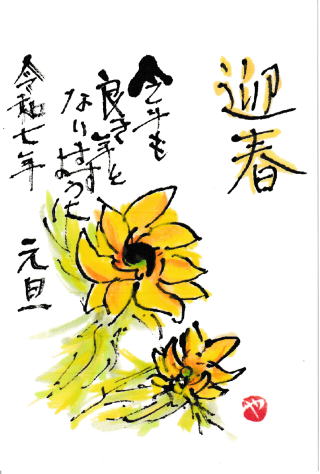 迎春
今年も
良き年と
なりますように
令和七年
元旦
や